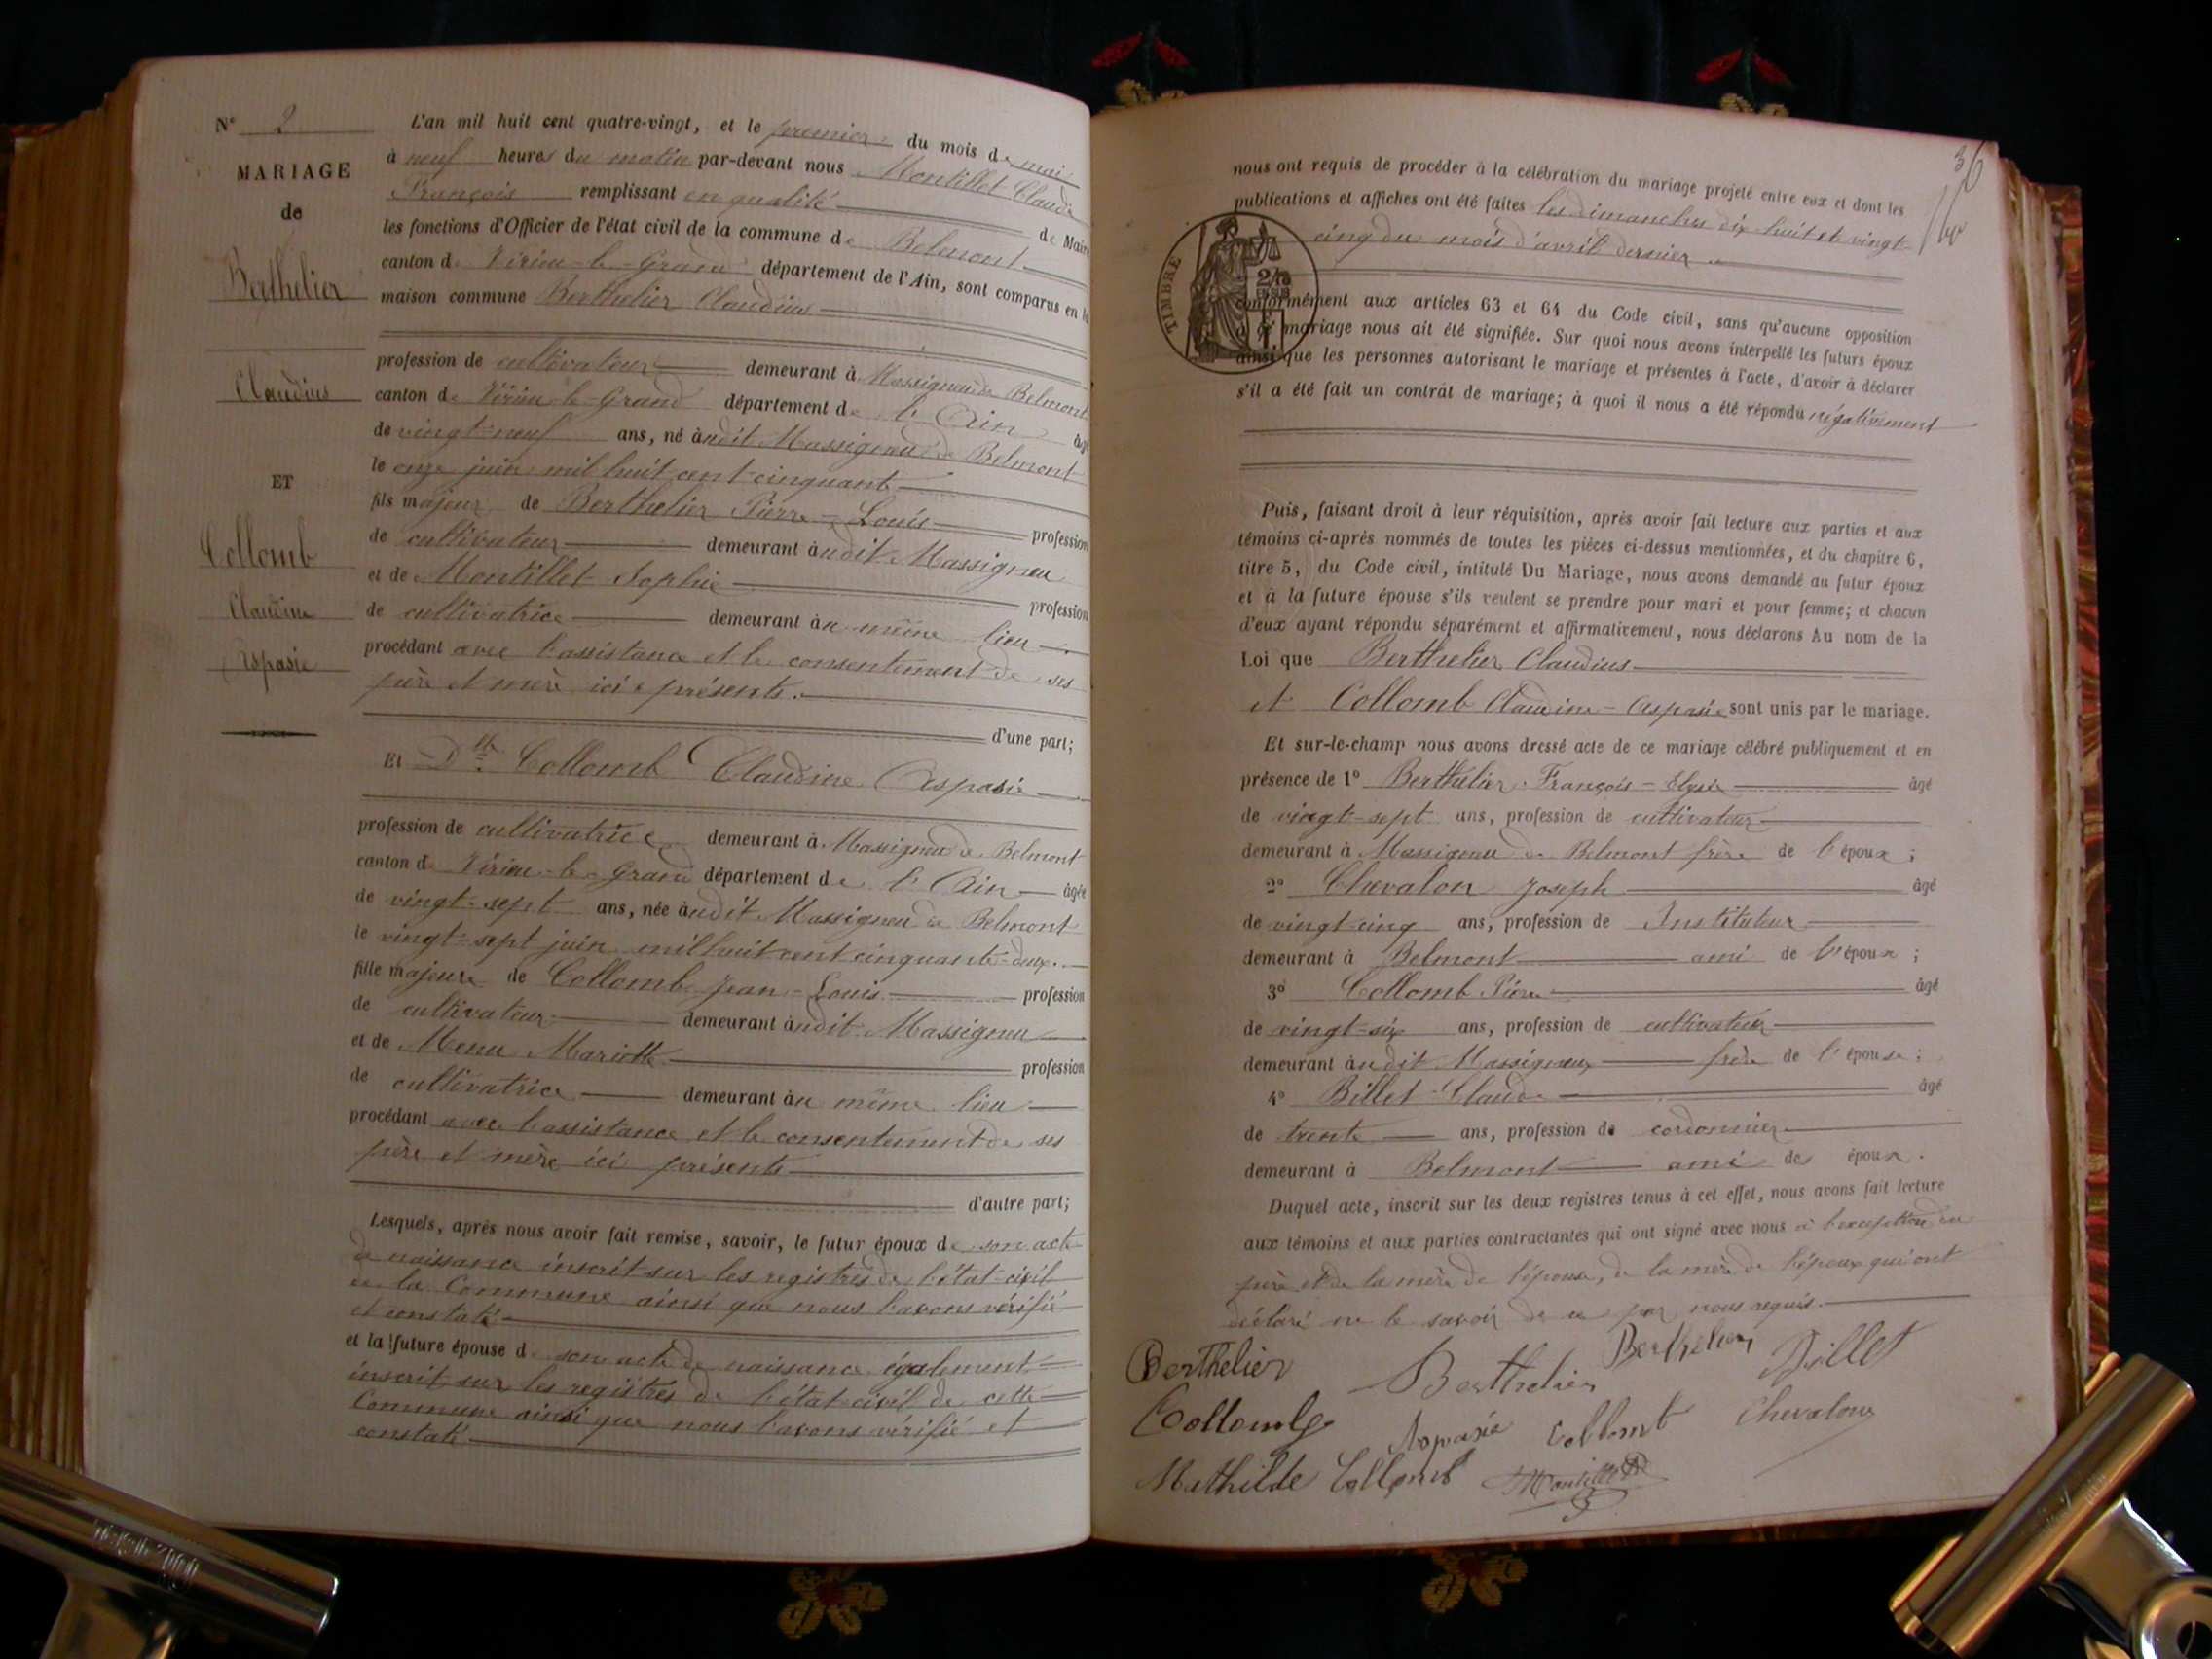 N° 2
MARIAGE
de
Berthelier
Claudius
ET
Collomb
Claudine
Aspasie
L'an mil huit cent quatre-vingt, et le premier du mois de mai
à neuf heures du matin par-devant nous Montillet Claude
François remplissant en qualité de Maire
les fonctions d'Officier de l'état civil de la commune de Belmont
canton de Virieu-le-Grand département de l'Ain, sont comparus en la
maison commune Berthelier Claudius
profession de cultivateur demeurant à Massigneu de Belmont
canton de Virieu-le-Grand département de l'Ain âgé
de vingt-neuf ans, né audit Massigneu de Belmont
le onze juin mil huit cent cinquante
fils majeur de Berthelier Pierre-Louis profession
de cultivateur demeurant audit Massigneu
et de Montillet Sophie profession
de cultivatrice demeurant au même lieu
procédant avec l'assistance et le consentement de ses
père et mère ici présents.
d'une part;
Et Dlle Collomb Claudine Aspasie
profession de cultivatrice demeurant à Massigneu de Belmont
canton de Virieu-le-Grand département de l'Ain âgée
de vingt-sept ans, née audit Massigneu de Belmont
le vingt-sept juin mil huit cent cinquante-deux.
fille majeure de Collomb Jean-Louis profession
de cultivateur demeurant audit Massigneu
et de Menu Mariette profession
de cultivatrice demeurant au même lieu
procédant avec l'assistance et le consentement de ses
père et mère ici présents
d'autre part;
Lesquels, après nous avoir fait remise, savoir, le futur époux de son acte
de naissance inscrit sur les registres de l'état-civil
de la Commune ainsi que nous l'avons vérifié
et constaté
et la future épouse de son acte de naissance également
inscrit sur les registres de l'état-civil de cette
Commune ainsi que nous l'avons vérifié et
constaté
36
nous ont requis de procéder à la célébration du mariage projeté entre eux et dont les
publications et affiches ont été faites les dimanches dix-huit et vingt-
cinq du mois d'avril dernier
TIMBRE
conformément aux articles 63 et 64 du Code civil, sans qu'aucune opposition
à ce mariage nous ait été signifiée. Sur quoi nous avons interpellé les futurs époux
ainsi que les personnes autorisant le mariage et présentes à l'acte, d'avoir à déclarer
s'il a été fait un contrat de mariage; à quoi il nous a été répondu négativement
Puis, faisant droit à leur réquisition, après avoir fait lecture aux parties et aux
témoins ci-après nommés de toutes les pièces ci-dessus mentionnées, et du chapitre 6,
titre 5, du Code civil, intitulé Du Mariage, nous avons demandé au futur époux
et à la future épouse s'ils veulent se prendre pour mari et pour femme; et chacun
d'eux ayant répondu séparément et affirmativement, nous déclarons Au nom de la
Loi que Berthelier Claudius
et Collomb Claudine-Aspasie sont unis par le mariage.
Et sur-le-champ nous avons dressé acte de ce mariage célébré publiquement et en
présence de 1° Berthelier François-Elysée âgé
de vingt-sept ans, profession de cultivateur
demeurant à Massigneu de Belmont frère de l'époux;
2° Chevalon Joseph âgé
de vingt-cinq ans, profession de Instituteur
demeurant à Belmont ami de l'époux;
3° Collomb Pierre âgé
de vingt-six ans, profession de cultivateur
demeurant audit Massigneu frère de l'épouse;
4° Billet Claude âgé
de trente ans, profession de cordonnier
demeurant à Belmont ami des époux.
Duquel acte, inscrit sur les deux registres tenus à cet effet, nous avons fait lecture
aux témoins et aux parties contractantes qui ont signé avec nous à l'exception du
père et de la mère de l'épouse, de la mère de l'époux qui ont
déclaré ne le savoir de ce par nous requis.
Berthelier Berthelier Berthelier Billet
Collomb Aspasie Collomb Chevalon
Mathilde Collomb Montillet